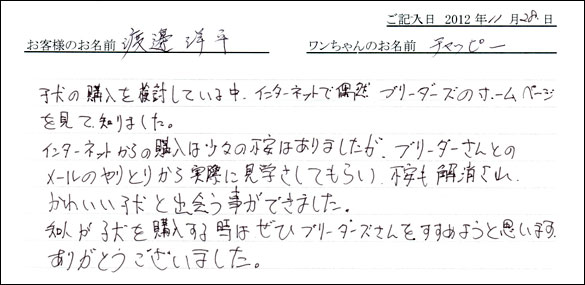 ご記入日 2012 年 11 月 28 日
お客様のお名前 渡邊 洋平 ワンちゃんのお名前 チャッピー
子犬の購入を検討している中、インターネットで偶然 ブリーダーズのホームページ
を見て知りました。
インターネットからの購入は少々の不安はありましたが、ブリーダーさんとの
メールのやりとりから実際に見学さしてもらい、不安も解消され、
かわいい子犬と出会う事ができました。
知人が子犬を購入する時はぜひブリーダーズさんをすすめようと思います。
ありがとうございました。